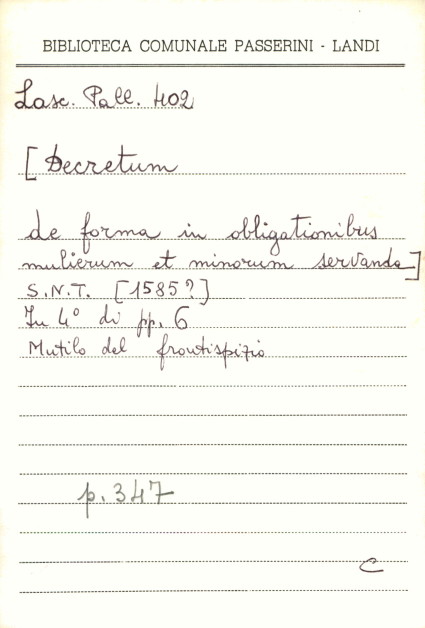 BIBLIOTECA COMUNALE PASSERINI - LANDI
Lasc. Pall. 402
[Decretum
de forma in obligationibus
mulierum et minorum servanda]
S.N.T. [1585?]
In 4° di pp. 6
Mutilo del frontispizio
p. 347
C